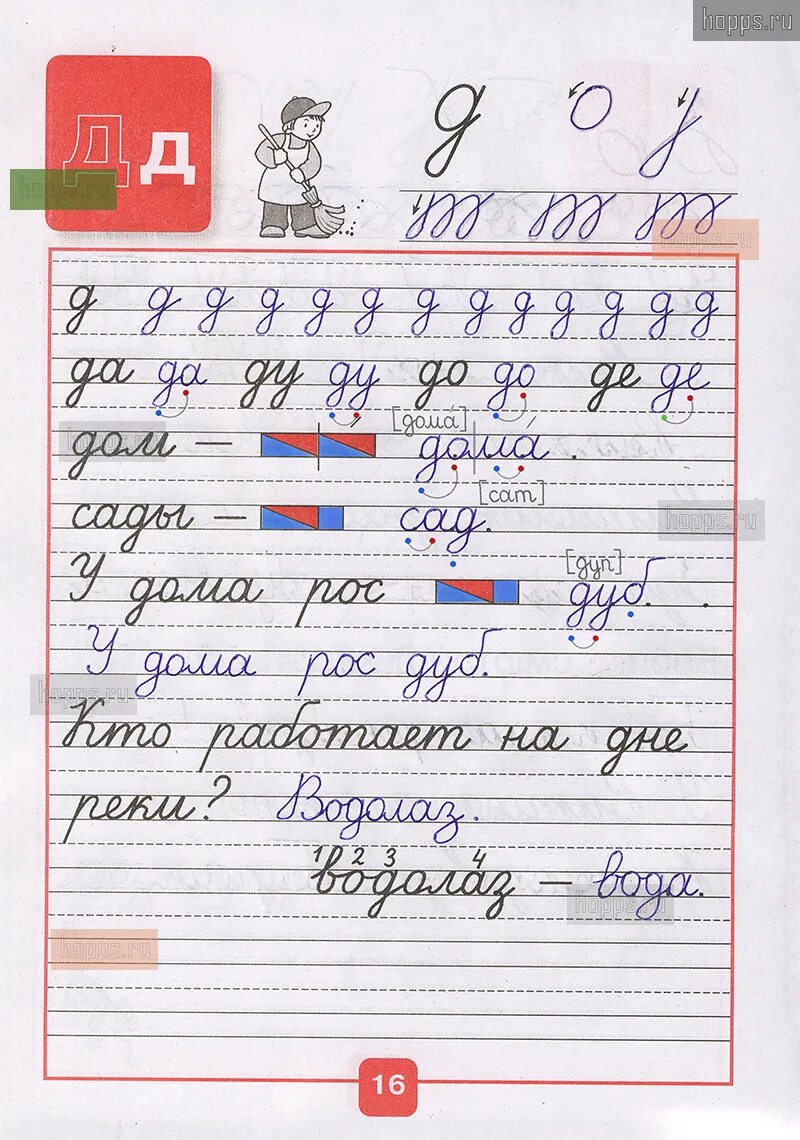 hopps.ru
Д д
hopps.ru
д
hopps.ru
д д д д д д д д д д д д
да да ду ду до до де де
[дома́]
дом — дома́.
hopps.ru
[сат]
сады — сад.
hopps.ru
[дуп]
У дома рос дуб. .
У дома рос дуб.
hopps.ru
Кто работает на дне
реки? Водолаз.
1 2 3 4
водолаз — вода.
hopps.ru
hopps.ru
16